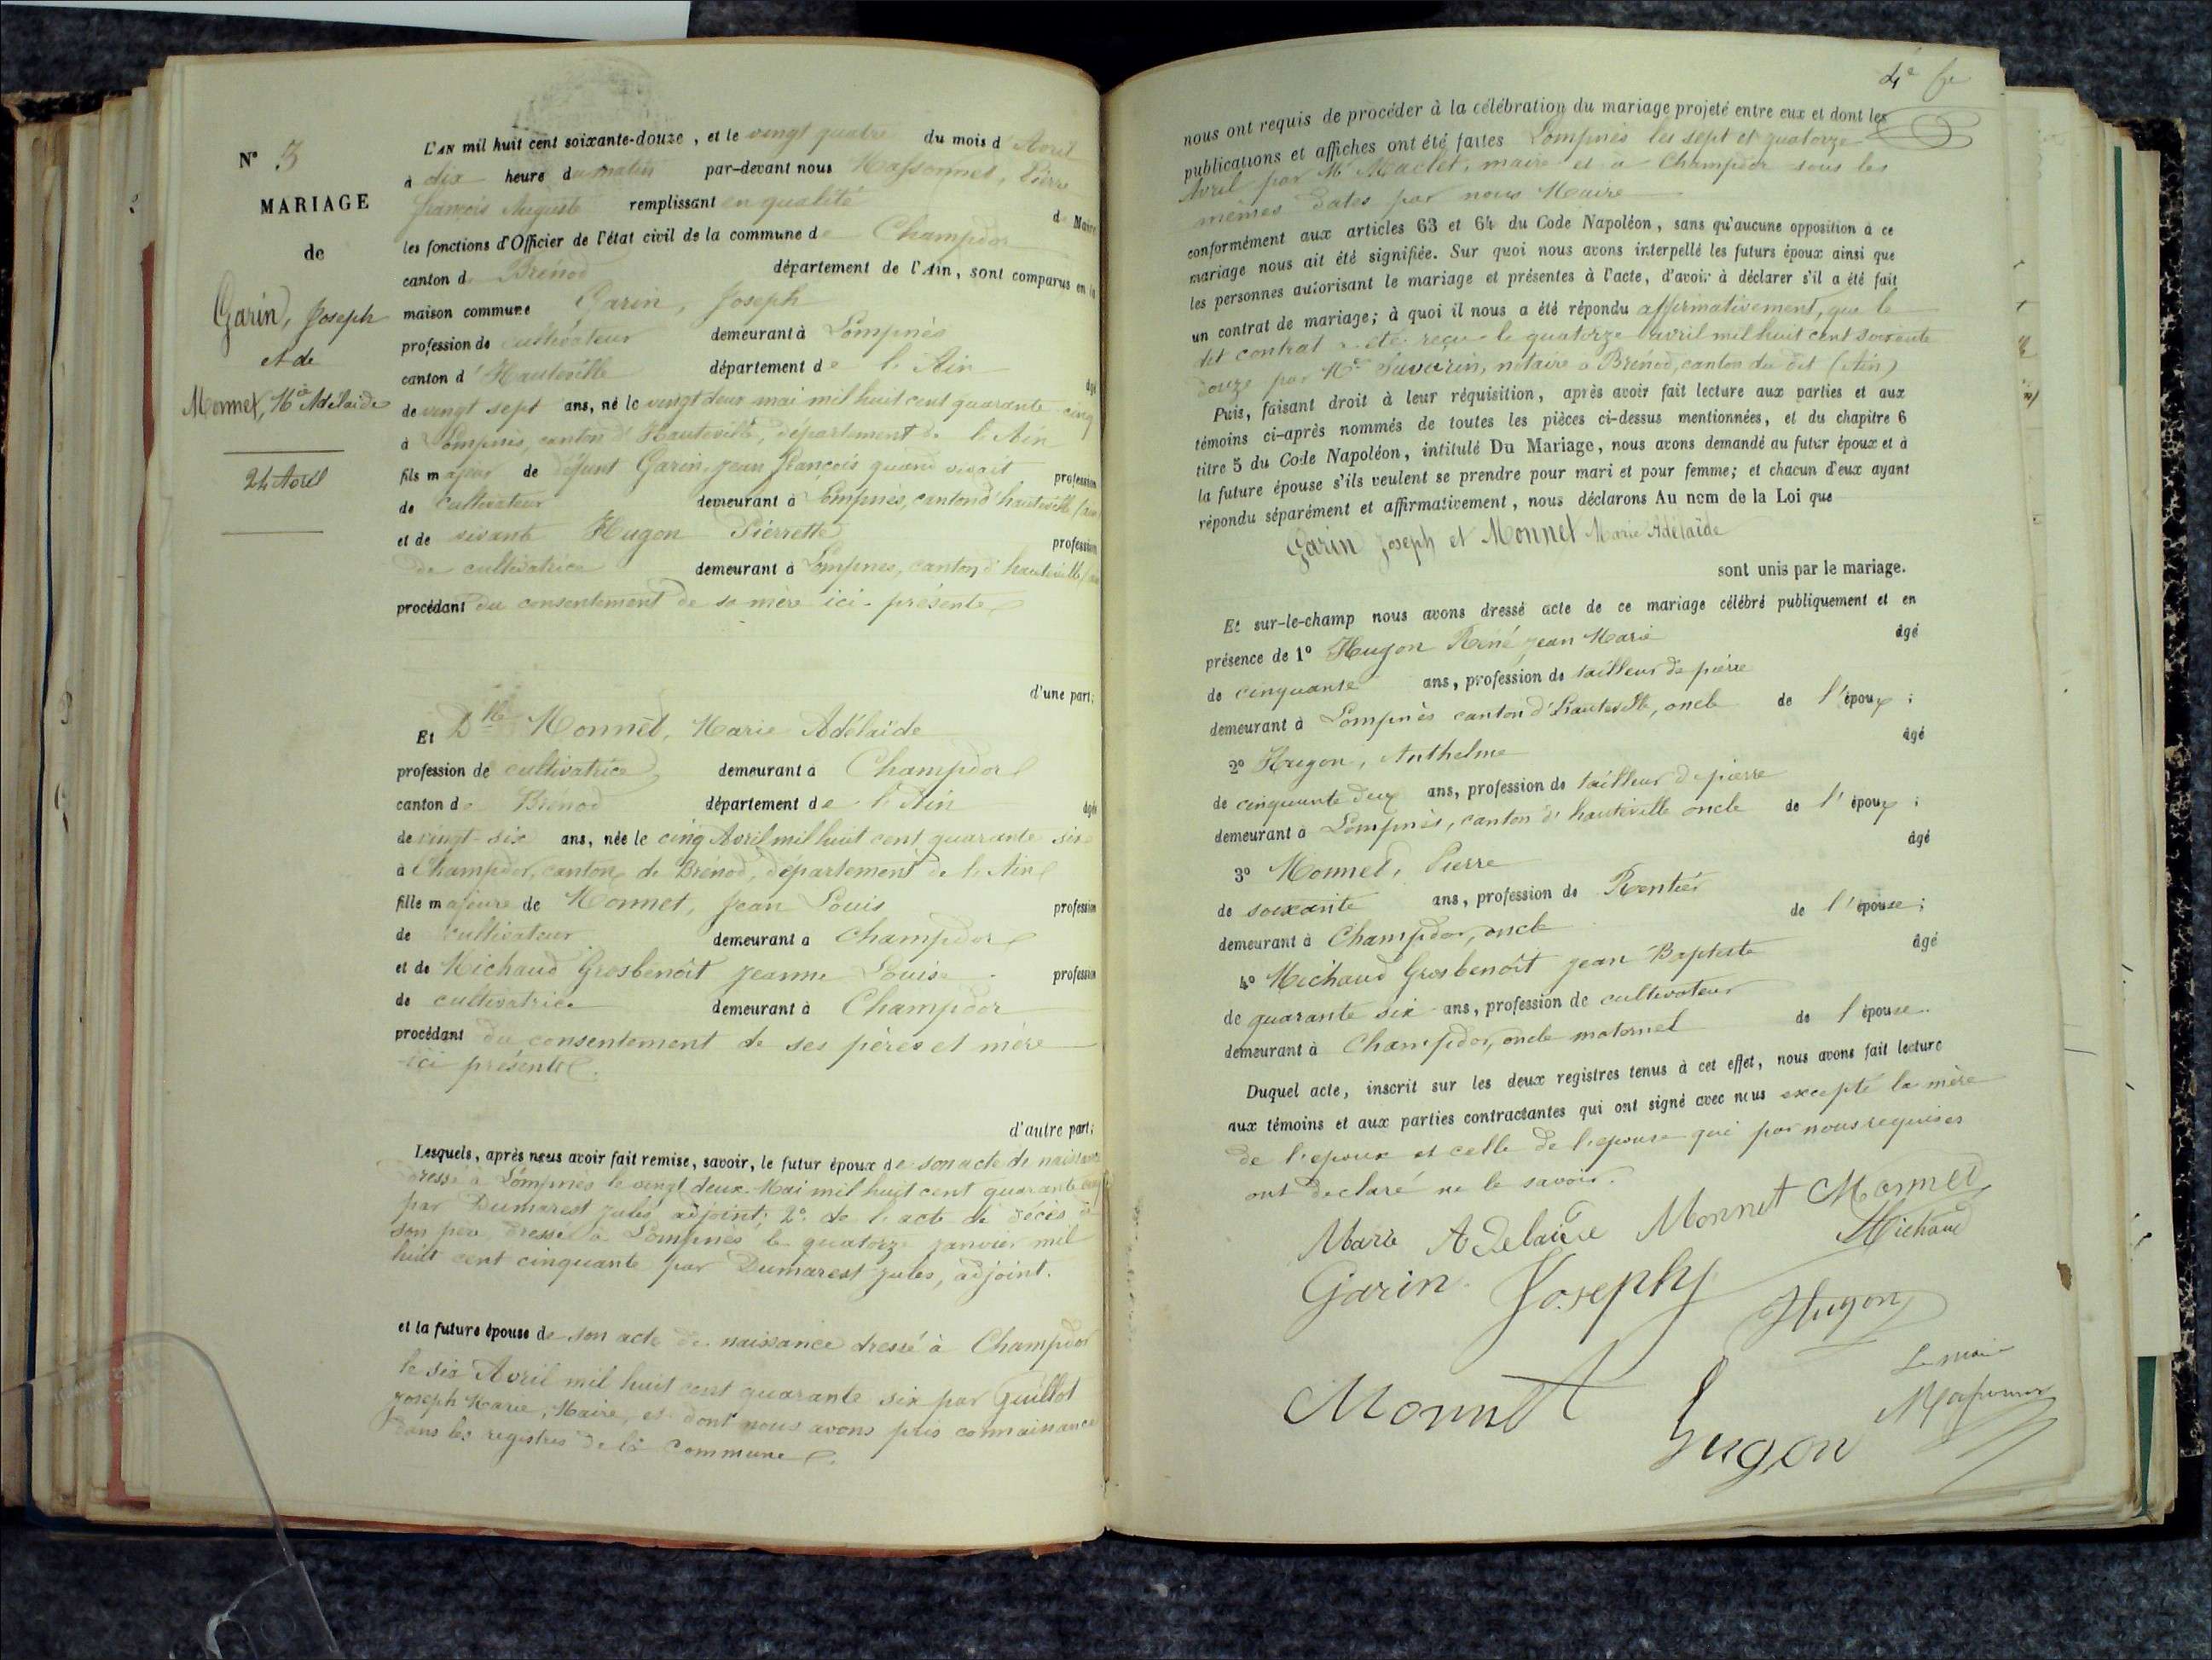 N° 3
MARIAGE
de
Garin, Joseph
et de
Monnet, Mie Adélaïde
24 Avril
L'AN mil huit cent soixante-douze, et le vingt quatre du mois d'Avril
à dix heure du matin par-devant nous Massonnet, Pierre
françois Auguste remplissant en qualité de Maire
les fonctions d'Officier de l'état civil de la commune de Champdor
canton de Brénod département de l'Ain, sont comparus en la
maison commune Garin, Joseph
profession de cultivateur demeurant à Lompnès
canton d'Hauteville département de l'Ain âgé
de vingt sept ans, né le vingt deux mai mil huit cent quarante cinq
à Lompnès, canton d'Hauteville, département de l'Ain
fils majeur de défunt Garin Jean françois quand vivait profession
de cultivateur demeurant à Lompnès, canton d'hauteville (ain)
et de vivante Hugon Pierrette profession
de cultivatrice demeurant à Lompnes, canton d'hauteville
procédant du consentement de sa mère ici présente
d'une part;
Et Dlle Monnet, Marie Adélaïde
profession de cultivatrice, demeurant à Champdor
canton de Brénod département de l'Ain âgée
de vingt-six ans, née le cinq Avril mil huit cent quarante six
à Champdor, canton de Brénod, département de l'Ain
fille majeure de Monnet, Jean Louis profession
de cultivateur demeurant à Champdor
et de Michaud Grosbenoît Jeanne Louise profession
de cultivatrice demeurant à Champdor
procédant du consentement de ses pères et mère
ici présente
d'autre part;
Lesquels, après nous avoir fait remise, savoir, le futur époux de son acte de naissance
dressé à Lompnes le vingt deux Mai mil huit cent quarante cinq
par Dumarest jules adjoint; 2° de l'acte de décès de
son père, dressé à Lompnès le quatorze janvier mil
huit cent cinquante par Dumarest jules, adjoint.
et la future épouse de son acte de naissance dressé à Champdor
le six Avril mil huit cent quarante six par Guillot
Joseph Marie, Maire, et dont nous avons pris connaissance
dans les registres de la commune
4e
nous ont requis de procéder à la célébration du mariage projeté entre eux et dont les
publications et affiches ont été faites Lompnès les sept et quatorze
Avril par Mr Maclet, maire et a Champdor sous les
mêmes dates par nous Maire
conformément aux articles 63 et 64 du Code Napoléon, sans qu'aucune opposition à ce
mariage nous ait été signifiée. Sur quoi nous avons interpellé les futurs époux ainsi que
les personnes autorisant le mariage et présentes à l'acte, d'avoir à déclarer s'il a été fait
un contrat de mariage; à quoi il nous a été répondu affirmativement, que le
dit contrat a été reçu le quatorze avril mil huit cent soixante
douze par Me Savarin, notaire à Brénod, canton du dit (Ain)
Puis, faisant droit à leur réquisition, après avoir fait lecture aux parties et aux
témoins ci-après nommés de toutes les pièces ci-dessus mentionnées, et du chapitre 6
titre 5 du Code Napoléon, intitulé Du Mariage, nous avons demandé au futur époux et à
la future épouse s'ils veulent se prendre pour mari et pour femme; et chacun d'eux ayant
répondu séparément et affirmativement, nous déclarons Au nom de la Loi que
Garin Joseph et Monnet Marie Adélaïde
sont unis par le mariage.
Et sur-le-champ nous avons dressé acte de ce mariage célébré publiquement et en
présence de 1° Hugon René jean Marie âgé
de cinquante ans, profession de tailleur de pierre
demeurant à Lompnès canton d'hauteville, oncle de l'époux;
2° Hugon, Anthelme âgé
de cinquante deux ans, profession de tailleur de pierre
demeurant à Lompnès, canton d'hauteville oncle de l'époux;
3° Monnet, Pierre âgé
de soixante ans, profession de Rentier
demeurant à Champdor, oncle de l'épouse;
4° Michaud Grosbenoît jean Baptiste âgé
de quarante six ans, profession de cultivateur
demeurant à Champdor, oncle maternel de l'épouse.
Duquel acte, inscrit sur les deux registres tenus à cet effet, nous avons fait lecture
aux témoins et aux parties contractantes qui ont signé avec nous excepté la mère
de l'epoux et celle de l'epouse qui par nous requises
ont declaré ne le savoir.
Marie Adelaide Monnet Monnet
Michaud
Garin Joseph
Hugon
Monnet
Hugon
Le maire
Massonnet